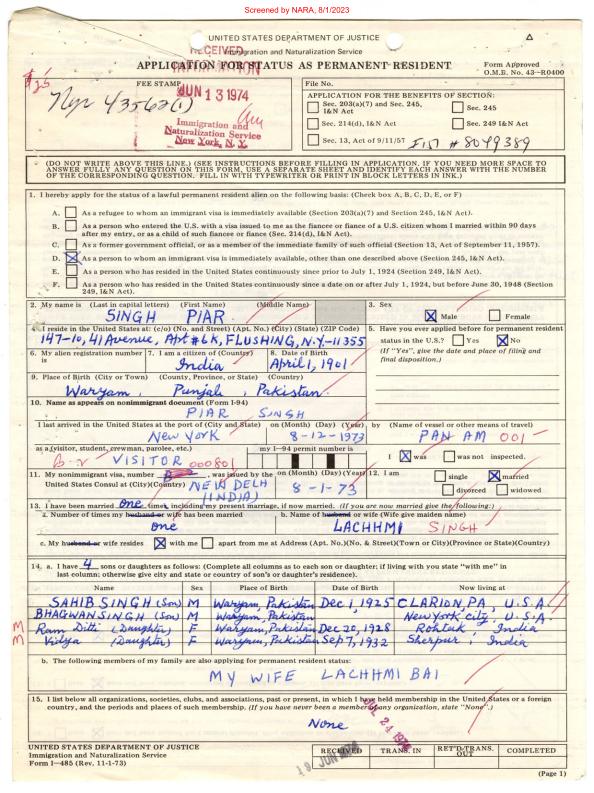 Screened by NARA, 8/1/2023
UNITED STATES DEPARTMENT OF JUSTICE
RECEIVED
Immigration and Naturalization Service
APPLICATION FOR STATUS AS PERMANENT RESIDENT
Form Approved
O.M.B. No. 43-R0400
$25
FEE STAMP
JUN 13 1974
Nyc 43563(1)
Immigration and
Naturalization Service
New York, N. Y.
File No.
APPLICATION FOR THE BENEFITS OF SECTION:
Sec. 203(a)(7) and Sec. 245, I&N Act
Sec. 245
Sec. 214(d), I&N Act
Sec. 249 I&N Act
Sec. 13, Act of 9/11/57
# 8049389
(DO NOT WRITE ABOVE THIS LINE.) (SEE INSTRUCTIONS BEFORE FILLING IN APPLICATION. IF YOU NEED MORE SPACE TO
ANSWER FULLY ANY QUESTION ON THIS FORM, USE A SEPARATE SHEET AND IDENTIFY EACH ANSWER WITH THE NUMBER
OF THE CORRESPONDING QUESTION. FILL IN WITH TYPEWRITER OR PRINT IN BLOCK LETTERS IN INK.)
1. I hereby apply for the status of a lawful permanent resident alien on the following basis: (Check box A, B, C, D, E, or F)
A. As a refugee to whom an immigrant visa is immediately available (Section 203(a)(7) and Section 245, I&N Act).
B. As a person who entered the U.S. with a visa issued to me as the fiancee or fiance of a U.S. citizen whom I married within 90 days
after my entry, or as a child of such fiancee or fiance (Sec. 214(d), I&N Act).
C. As a former government official, or as a member of the immediate family of such official (Section 13, Act of September 11, 1957).
D. X As a person to whom an immigrant visa is immediately available, other than one described above (Section 245, I&N Act).
E. As a person who has resided in the United States continuously since prior to July 1, 1924 (Section 249, I&N Act).
F. As a person who has resided in the United States continuously since a date on or after July 1, 1924, but before June 30, 1948 (Section
249, I&N Act).
2. My name is (Last in capital letters) (First Name) (Middle Name)
SINGH PIAR
3. Sex
X Male Female
4. I reside in the United States at: (c/o) (No. and Street) (Apt. No.) (City) (State) (ZIP Code)
147-10, 41 Avenue, Apt # 6K, FLUSHING, N.Y.-11355
5. Have you ever applied before for permanent resident
status in the U.S.? Yes X No
(If "Yes", give the date and place of filing and
final disposition.)
6. My alien registration number
is
7. I am a citizen of (Country)
India
8. Date of Birth
April 1, 1901
9. Place of Birth (City or Town) (County, Province, or State) (Country)
Waryam, Punjab, Pakistan
10. Name as appears on nonimmigrant document (Form I-94)
PIAR SINGH
I last arrived in the United States at the port of (City and State) on (Month) (Day) (Year) by (Name of vessel or other means of travel)
New York 8-12-1973 PAN AM 001
as a (visitor, student, crewman, parolee, etc.) my I-94 permit number is
B-2 VISITOR 000801
I X was was not inspected.
11. My nonimmigrant visa, number B-2, was issued by the on (Month) (Day) (Year)
United States Consul at (City) (Country) NEW DELH (INDIA) 8-1-73
12. I am
single X married
divorced widowed
13. I have been married one times, including my present marriage, if now married. (If you are now married give the following:)
a. Number of times my husband or wife has been married
one
b. Name of husband or wife (Wife give maiden name)
LACHHMI SINGH
c. My husband or wife resides X with me apart from me at Address (Apt. No.) (No. & Street) (Town or City) (Province or State) (Country)
14. a. I have 4 sons or daughters as follows: (Complete all columns as to each son or daughter; if living with you state "with me" in
last column; otherwise give city and state or country of son's or daughter's residence).
Name Sex Place of Birth Date of Birth Now living at
SAHIB SINGH (Son) M Waryam, Pakistan Dec 1, 1925 CLARION, PA, U.S.A.
BHAGWAN SINGH (Son) M Waryam, Pakistan New York city U.S.A.
M Ram Ditti (Daughter) F Waryam, Pakistan Dec 20, 1928 Rohtak, India
M Vidya (Daughter) F Waryam, Pakistan Sep 7, 1932 Sherpur, India
b. The following members of my family are also applying for permanent resident status:
MY WIFE LACHHMI BAI
15. I list below all organizations, societies, clubs, and associations, past or present, in which I have held membership in the United States or a foreign
country, and the periods and places of such membership. (If you have never been a member of any organization, state "None".)
None
JUL 24 1974
UNITED STATES DEPARTMENT OF JUSTICE
Immigration and Naturalization Service
Form I-485 (Rev. 11-1-73)
RECEIVED TRANS. IN RET'D-TRANS. OUT COMPLETED
19 JUN
(Page 1)